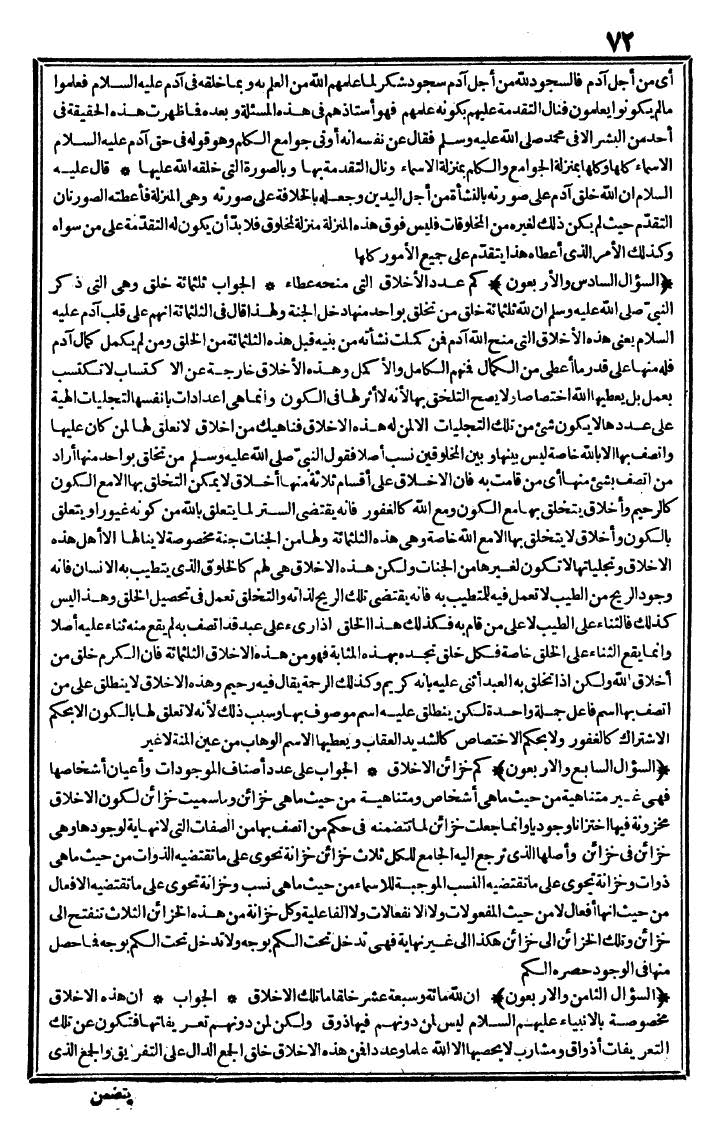 ٧٢
أى من أجل آدم فالسجود لله من أجل آدم سجود شكر لما علمهم الله من العلم به وبما خلقه فى آدم عليه السلام فعلموا
مالم يكونوا يعلمون فنال التقدمة عليهم بكونه علمهم فهو أستاذهم فى هذه المسئلة وبعده فما ظهرت هذه الحقيقة فى
أحد من البشر الا فى محمد صلى الله عليه وسلم فقال عن نفسه انه أوتى جوامع الكلم وهو قوله فى حق آدم عليه السلام
الاسماء كلها وكلها بمنزلة الجوامع والكلم بمنزلة الاسماء ونال التقدمة بها وبالصورة التى خلقه الله عليها * قال عليه
السلام ان الله خلق آدم على صورته بالنشأة من أجل اليدين وجعله بالخلافة على صورته وهى المنزلة فأعطته الصورتان
التقدّم حيث لم يكن ذلك لغيره من المخلوقات فليس فوق هذه المنزلة منزلة لمخلوق فلا بدّ أن يكون له التقدّمة على من سواه
وكذلك الأمر الذى أعطاه هذا يتقدّم على جميع الأمور كلها
﴿السؤال السادس والأربعون﴾ كم عدد الأخلاق التى منحه عطاء * الجواب ثلثمائة خلق وهى التى ذكر
النبىّ صلى الله عليه وسلم ان لله ثلثمائة خلق من تخلق بواحد منها دخل الجنة ولهذا قال فى الثلثمائة انهم على قلب آدم عليه
السلام يعنى هذه الأخلاق التى منح الله آدم فمن كملت نشأته من بنيه قبل هذه الثلثمائة من الخلق ومن لم يكمل كمال آدم
فله منها على قدر ما أعطى من الكمال فنهم الكامل والأكمل وهذه الأخلاق خارجة عن الاكتساب لا تكتسب
بعمل بل يعطيها الله اختصاصا ولا يصح التلخق بها لأنه لا أثر لها فى الكون وانما هى اعدادات بانفسها لتجليات الهية
على عددها لا يكون شئ من تلك التجليات الا لمن له هذه الاخلاق فناهيك من اخلاق لا تعلق لها لمن كان عليها
واتصف بها الا بالله خاصة ليس بينها وبين المخلوقين نسب أصلا فقول النبىّ صلى الله عليه وسلم من تخلق بواحد منها أراد
من اتصف بشئ منها أى من قامت به فان الاخلاق على أقسام ثلاثة منها أخلاق لا يمكن التخلق بها الا مع الكون
كالرحيم وأخلاق يتخلق بها مع الكون ومع الله كالغفور فانه يقتضى الستر لما يتعلق بالله من كونه غيورا ويتعلق
بالكون وأخلاق لا يتخلق بها الا مع الله خاصة وهى هذه الثلثمائة ولها من الجنات جنة مخصوصة لا ينالها الا أهل هذه
الاخلاق وتجلياتها لا تكون لغيرها من الجنات ولكن هذه الاخلاق هى لهم كالخلوق الذى يتطيب به الانسان فانه
وجود الريح من الطيب لا تعمل فيه للمتطيب به فانه يقتضى تلك الريح لذاته والتخلق تعمل فى تحصيل الخلق وهذا ليس
كذلك فالثناء على الطيب لا على من قام به فكذلك هذا الخلق اذا رىء على عبد قد اتصف به لم يقع منه ثناء عليه أصلا
وانما يقع الثناء على الخلق خاصة فكل خلق تجده بهذه المثابة فهو من هذه الاخلاق الثلثمائة فان الكرم خلق من
أخلاق الله ولكن اذا تخلق به العبد أثنى عليه بانه كريم وكذلك الرحمة يقال فيه رحيم وهذه الاخلاق لا ينطلق على من
اتصف بها اسم فاعل جملة واحدة لكن ينطلق عليه اسم موصوف بها وسبب ذلك لأنه لا تعلق لها بالكون الا بحكم
الاشتراك كالغفور ولا بحكم الاختصاص كالشديد العقاب ويعطيها الاسم الوهاب من عين المنة لا غير
﴿السؤال السابع والاربعون﴾ كم خزائن الاخلاق * الجواب على عدد أصناف الموجودات وأعيان أشخاصها
فهى غير متناهية من حيث ما هى أشخاص ومتناهية من حيث ما هى خزائن وما سميت خزائن لكون الاخلاق
مخزونة فيها اختزانا وجوديا وانما جعلت خزائن لما تتضمنه فى حكم من اتصف بها من الصفات التى لا نهاية لوجودها وهى
خزائن فى خزائن وأصلها الذى ترجع اليه الجامع للكل ثلاث خزائن خزانة تحوى على ما تقتضيه الذوات من حيث ما هى
ذوات وخزانة تحوى على ما تقتضيه النسب الموجبة للاسماء من حيث ما هى نسب وخزانة تحوى على ما تقتضيه الافعال
من حيث انها أفعال لا من حيث المفعولات ولا الانفعالات ولا الفاعلية وكل خزانة من هذه الخزائن الثلاث تنفتح الى
خزائن وتلك الخزائن الى خزائن هكذا الى غير نهاية فهى تدخل تحت الكم بوجه ولا تدخل تحت الكم بوجه فما حصل
منها فى الوجود حصره الكم
﴿السؤال الثامن والاربعون﴾ ان لله مائة وسبعة عشر خلقا ما تلك الاخلاق * الجواب * ان هذه الاخلاق
مخصوصة بالانبياء عليهم السلام ليس لمن دونهم فيها ذوق ولكن لمن دونهم تعريفاتها فتكون عن تلك
التعريفات أذواق ومشارب لا يحصيها الا الله علما وعددا فمن هذه الاخلاق خلق الجمع الدال على التفريق والجمع الذى
يتضمن